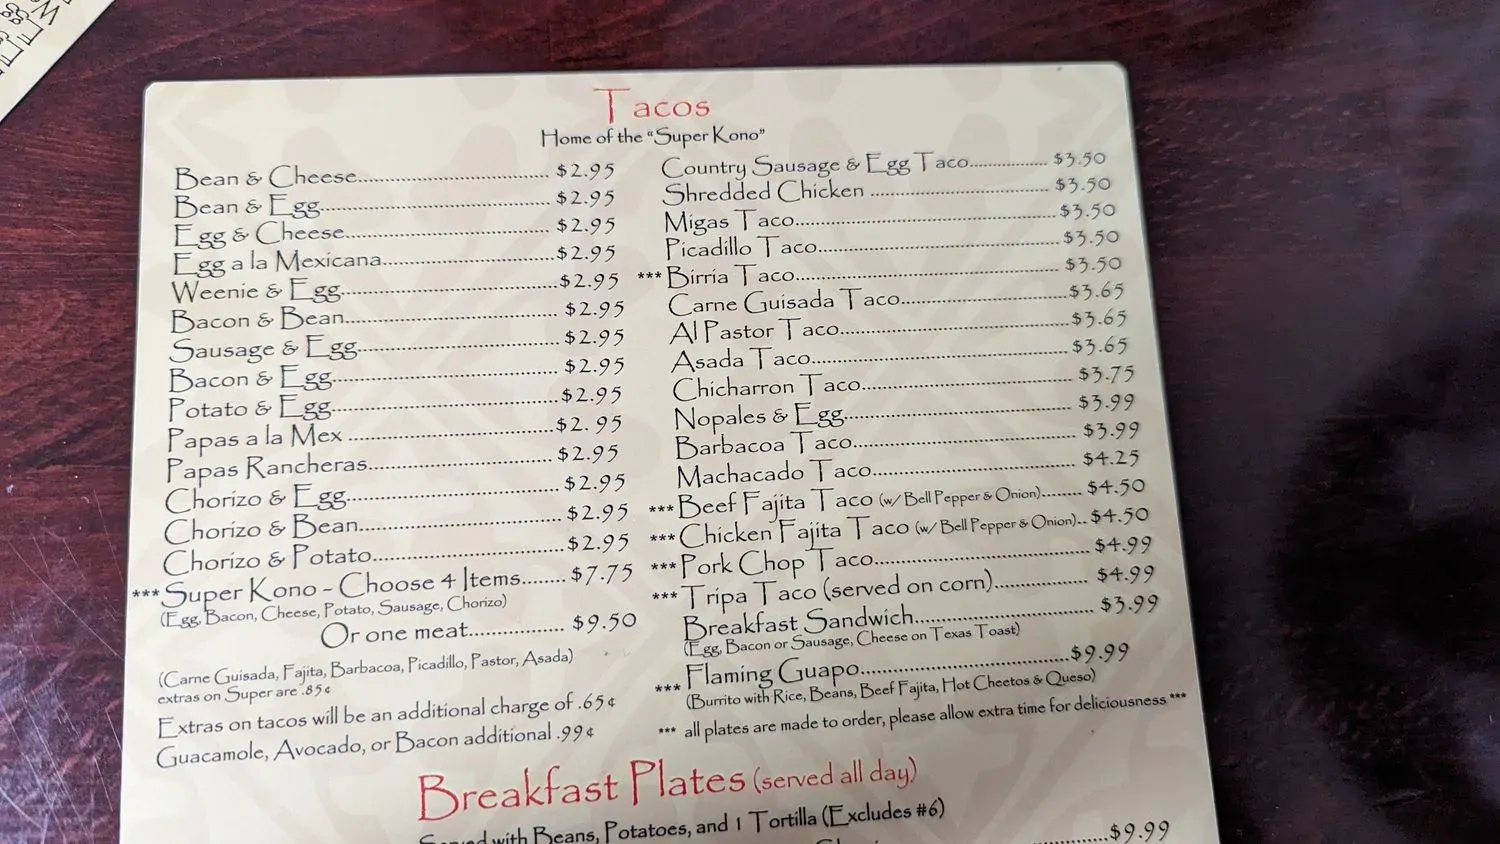 Tacos
Home of the "Super Kono"
Bean & Cheese.......... $2.95
Bean & Egg.......... $2.95
Egg & Cheese.......... $2.95
Egg a la Mexicana.......... $2.95
Weenie & Egg.......... $2.95
Bacon & Bean.......... $2.95
Sausage & Egg.......... $2.95
Bacon & Egg.......... $2.95
Potato & Egg.......... $2.95
Papas a la Mex .......... $2.95
Papas Rancheras.......... $2.95
Chorizo & Egg.......... $2.95
Chorizo & Bean.......... $2.95
Chorizo & Potato.......... $2.95
***Super Kono - Choose 4 Items........ $7.75
(Egg, Bacon, Cheese, Potato, Sausage, Chorizo)
Or one meat.......... $9.50
(Carne Guisada, Fajita, Barbacoa, Picadillo, Pastor, Asada)
extras on Super are .85¢
Extras on tacos will be an additional charge of .65¢
Guacamole, Avocado, or Bacon additional .99¢
Country Sausage & Egg Taco.......... $3.50
Shredded Chicken .......... $3.50
Migas Taco.......... $3.50
Picadillo Taco.......... $3.50
***Birria Taco.......... $3.50
Carne Guisada Taco.......... $3.65
Al Pastor Taco.......... $3.65
Asada Taco.......... $3.65
Chicharron Taco.......... $3.75
Nopales & Egg.......... $3.99
Barbacoa Taco.......... $3.99
Machacado Taco.......... $4.25
***Beef Fajita Taco (w/ Bell Pepper & Onion)........ $4.50
***Chicken Fajita Taco (w/ Bell Pepper & Onion).. $4.50
***Pork Chop Taco.......... $4.99
***Tripa Taco (served on corn).......... $4.99
Breakfast Sandwich.......... $3.99
(Egg, Bacon or Sausage, Cheese on Texas Toast)
***Flaming Guapo.......... $9.99
(Burrito with Rice, Beans, Beef Fajita, Hot Cheetos & Queso)
*** all plates are made to order, please allow extra time for deliciousness ***
Breakfast Plates (served all day)
Served with Beans, Potatoes, and 1 Tortilla (Excludes #6)
......$9.99